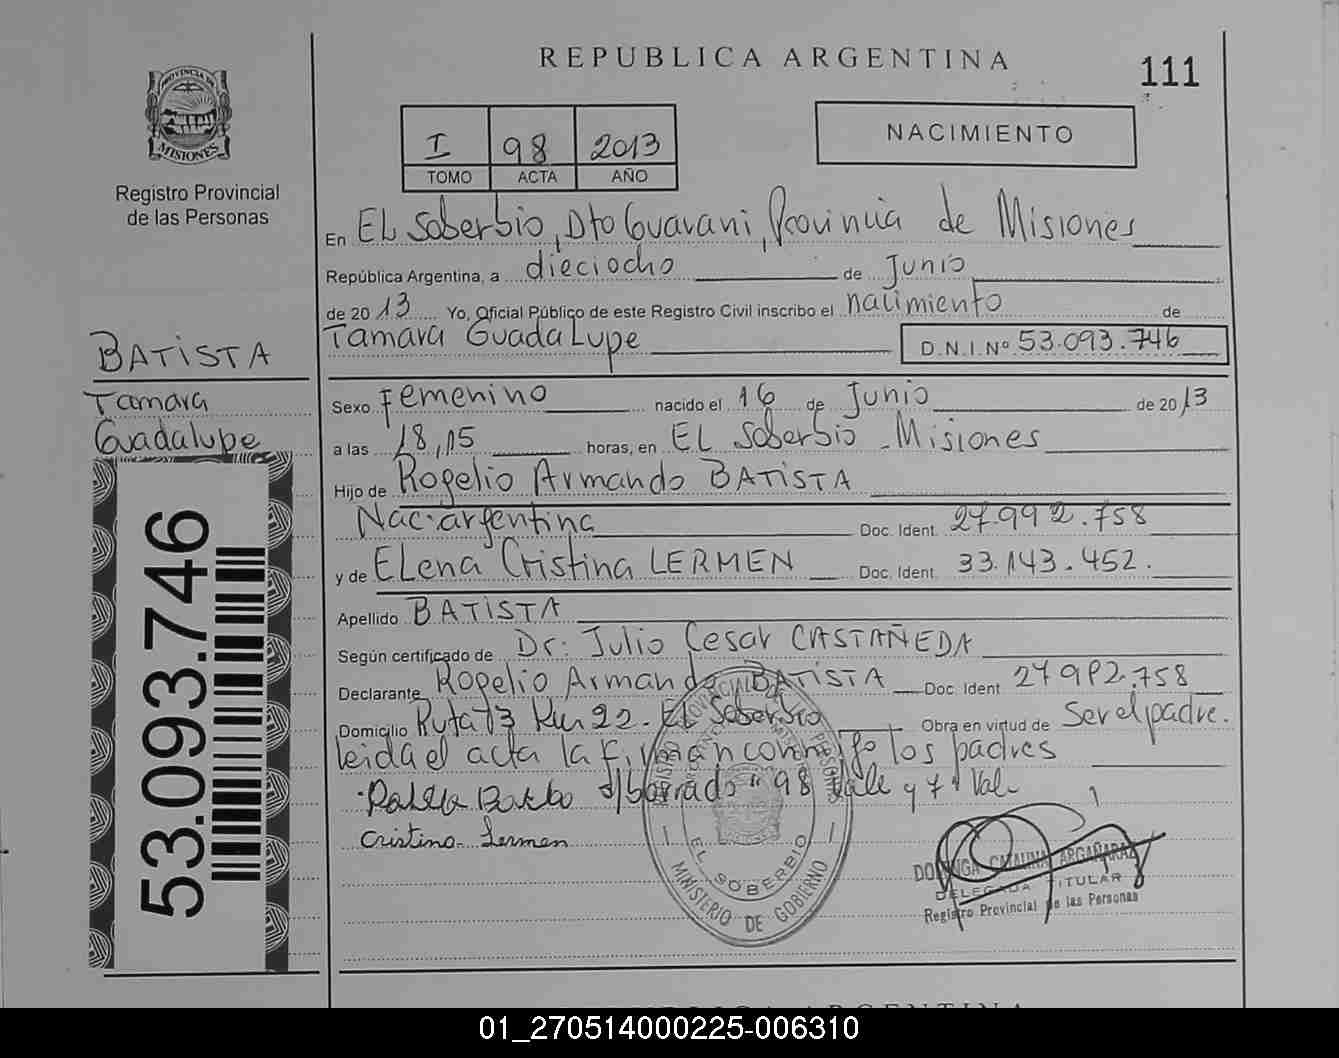 REPUBLICA ARGENTINA
111
PROVINCIA DE
MISIONES
Registro Provincial
de las Personas
I 98 2013
TOMO ACTA AÑO
NACIMIENTO
En El Soberbio, Dto Guarani, Provincia de Misiones
República Argentina, a dieciocho de Junio
de 2013 Yo, Oficial Público de este Registro Civil inscribo el nacimiento de
Tamara Guadalupe D.N.I.Nº 53.093.746
BATISTA
Tamara
Guadalupe
53.093.746
Sexo Femenino nacido el 16 de Junio de 2013
a las 18,15 horas, en El Soberbio - Misiones
Hijo de Rogelio Armando BATISTA
Nac. argentina Doc. Ident. 27.992.758
y de Elena Cristina LERMEN Doc. Ident. 33.143.452.
Apellido BATISTA
Según certificado de Dr: Julio Cesar CASTAÑEDA
Declarante Rogelio Armando BATISTA Doc. Ident 27992.758
Domicilio Ruta 13 Km 22. El Soberbio Obra en virtud de Ser el padre.
leida el acta la firman conmigo los padres
s/borrado "98 Vale y 7" Val
Cristina Lermen
EL SOBERBIO
MINISTERIO DE GOBIERNO
CATALINA ARGAÑARAZ
DELEGADA TITULAR
Registro Provincial de las Personas
01_270514000225-006310